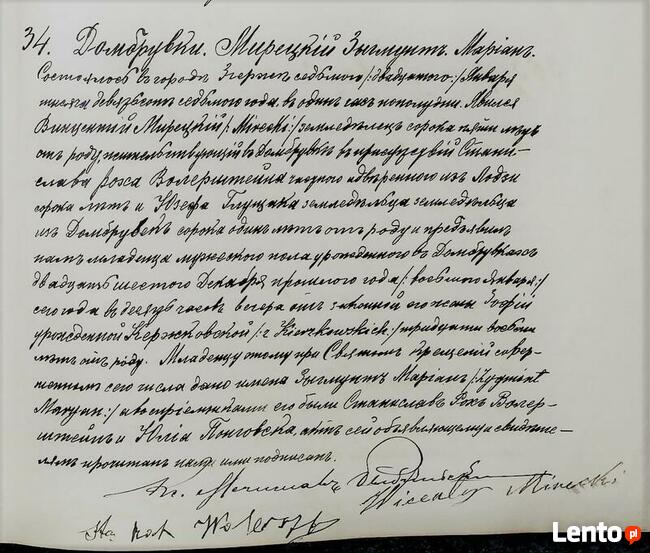 34. Домбрувки. Мирецкій Зыгмунтъ Маріанъ.
Состоялось въ городѣ Згержѣ седьмого /:двадцатого:/ Января
тысяча девятьсотъ седьмого года, въ одинъ часъ пополудни. Явился
Винцентій Мирецкій /:Mirecki:/ земледѣлецъ сорока пяти лѣтъ
отъ роду жительствующій въ Домбрувкѣ въ присутствіи Стани-
слава Роха Волерштейна частного повѣренного изъ Лодзи
сорока лѣтъ и Юзефа Глущака земледѣльца земледѣльца
изъ Домбрувекъ сорока одинъ лѣтъ отъ роду и предъявилъ
намъ младенца мужескаго пола урожденного въ Домбрувкахъ
двадцать шестого Декабря прошлого года /:восьмого Января:/
сего года въ десять часовъ вечера отъ законной его жены Зофіи
урожденной Кержковской /:z Kierzkowskich:/ тридцати восьми
лѣтъ отъ роду. Младенцу этому при Святомъ Крещеніи совер-
шенномъ сего числа дано имена Зыгмунтъ Маріанъ /:Zygmunt
Maryan:/ а воспріемниками его были Станиславъ Рохъ Волер-
штейнъ и Юлія Понговска. Актъ сей объявляющему и свидѣте-
лямъ прочитанъ нами и ими подписанъ.
Wicenty Mirecki
St. Roch
Lento.pl